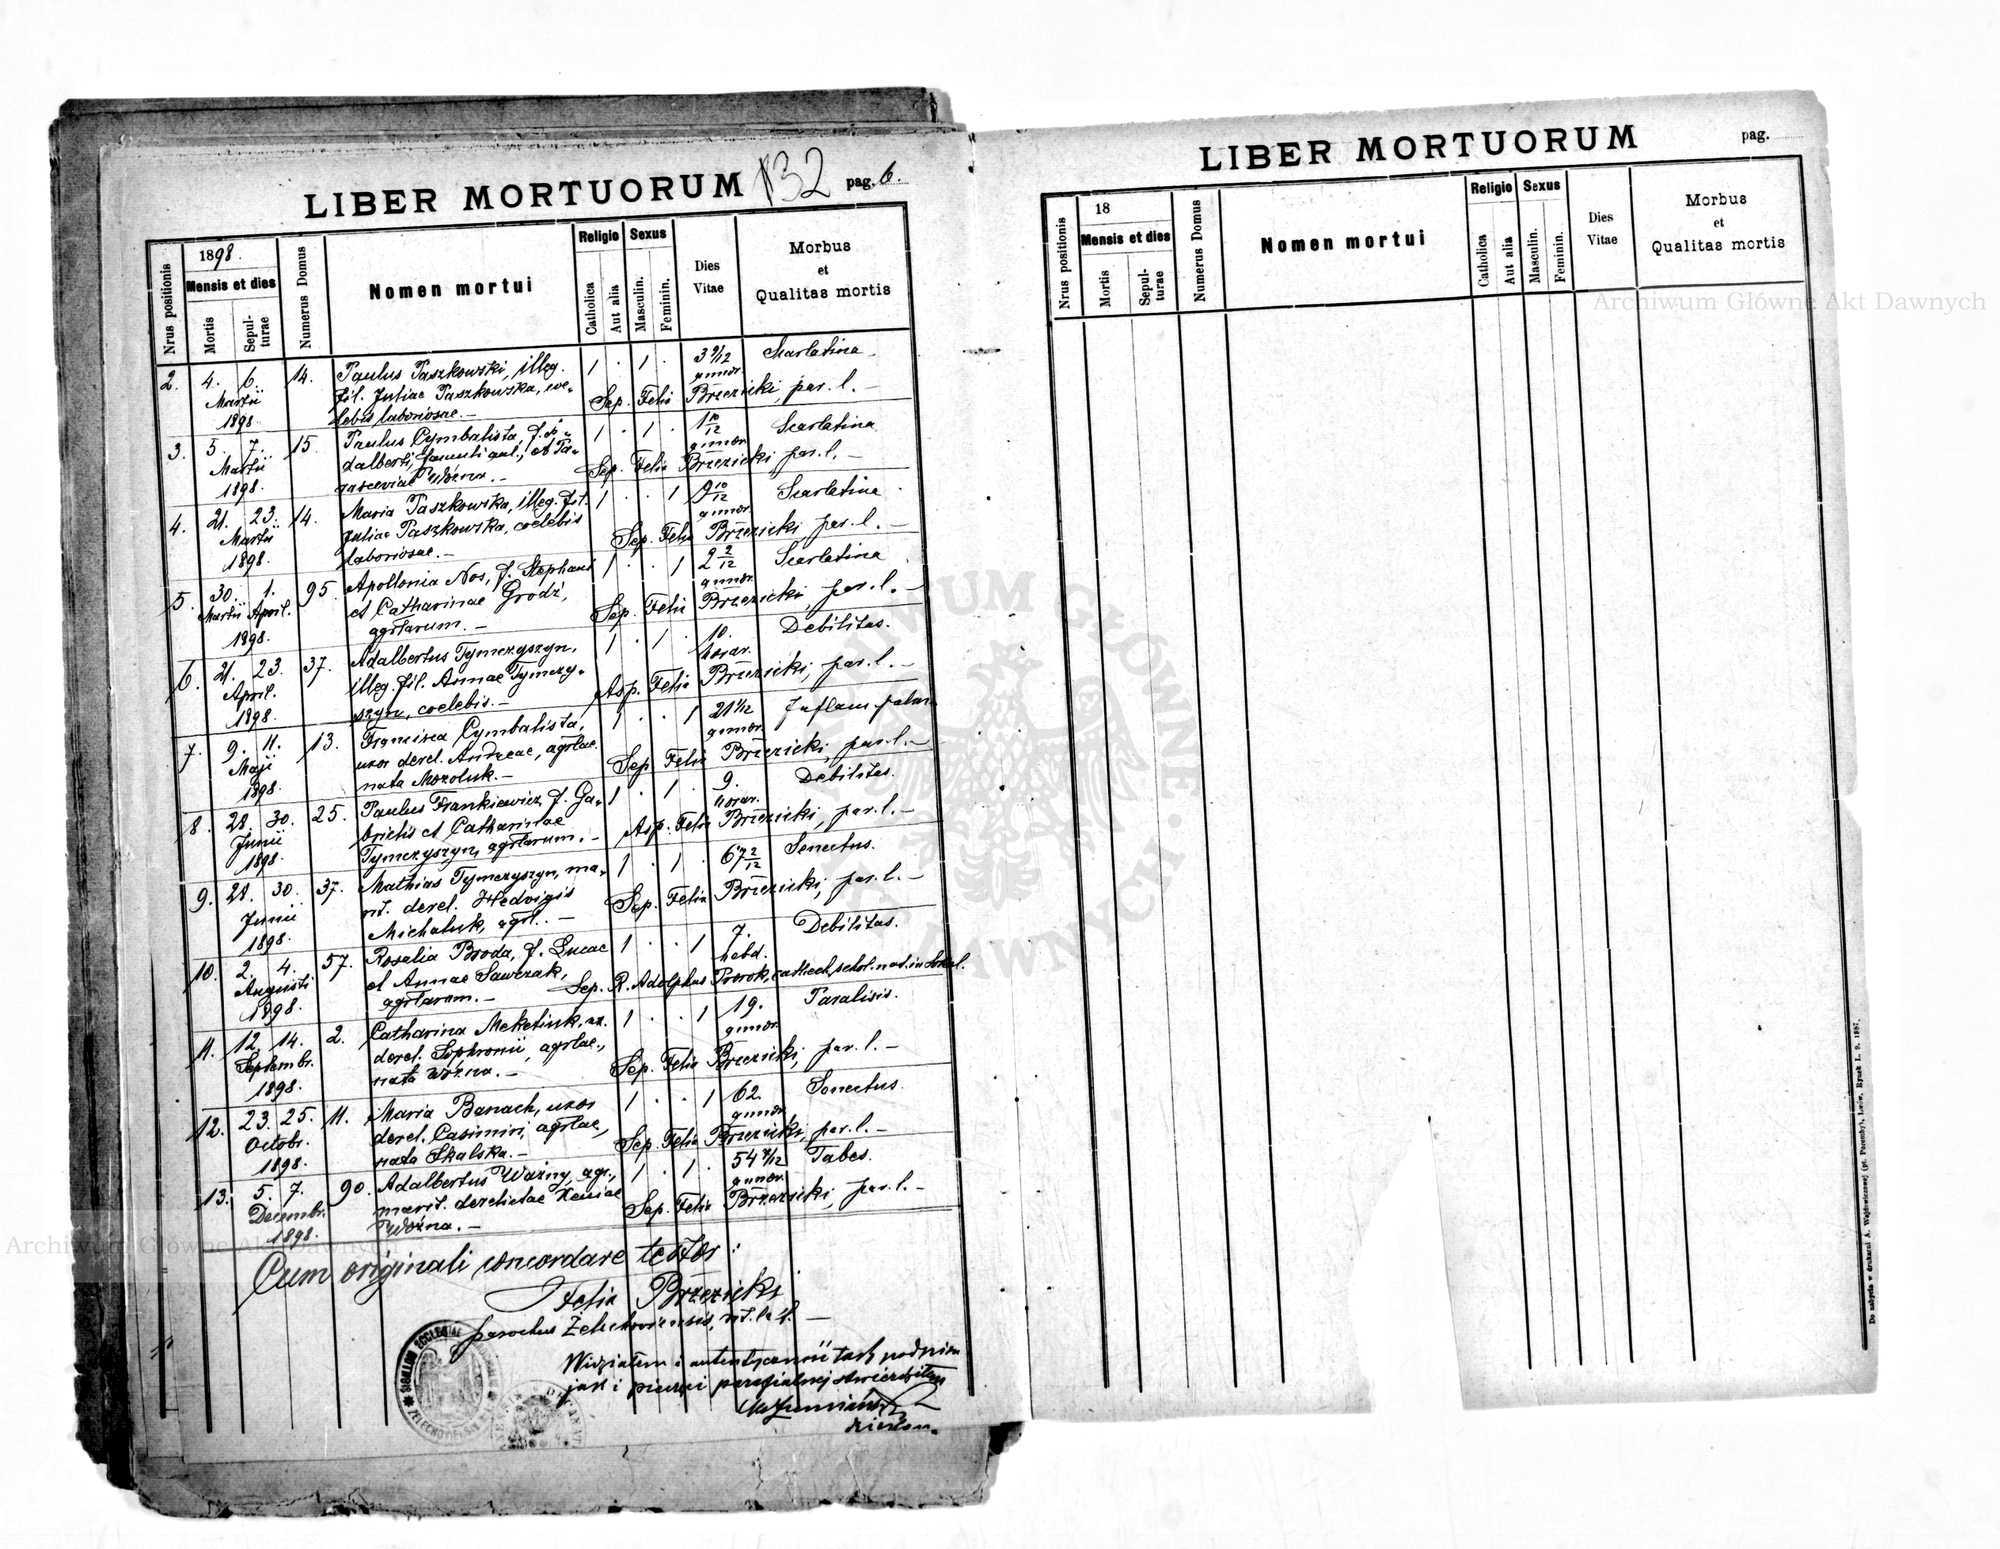 LIBER MORTUORUM 132 pag. 6.
Nrus positionis
1898.
Mensis et dies
Mortis
Sepul-
turae
Numerus Domus
Nomen mortui
Religio
Catholica
Aut alia
Sexus
Masculin.
Feminin.
Dies
Vitae
Morbus
et
Qualitas mortis
2. 4. 6. 14. Paulus Paszkowski, illeg. 1 . 1 . 3 9/12 Scarlatina
Martii fil. Juliae Paszkowska, coe- annor.
1898. lebis laboriosae. — Sep. Felix Brzezicki, par. l. —
3. 5. 7. 15. Paulus Cymbalista, f. A- 1 . 1 . 1 10/12 Scarlatina
Martii dalberti, famuli aul., et Pa- annor.
1898. rasceviae Woźna. — Sep. Felix Brzezicki par. l. —
4. 21. 23. 14. Maria Paszkowska, illeg. fil. 1 . . 1 10/12 Scarlatina
Martii Juliae Paszkowska, coelebis annor.
1898. laboriosae. — Sep. Felix Brzezicki par. l. —
5. 30. 1. 95. Apollonia Nos, f. Stephani 1 . . 1 2 2/12 Scarlatina
Martii April. et Catharinae Grodź, annor.
1898. agrlarum. — Sep. Felix Brzezicki, par. l. —
6. 21. 23. 37. Adalbertus Tymczyszyn, 1 . 1 . 10. Debilitas.
April. illeg. fil. Annae Tymczy- horar.
1898. szyn, coelebis. — Asp. Felix Brzezicki, par. l. —
7. 9. 11. 13. Francisca Cymbalista, 1 . . 1 21 Inflam pulm
Maji uxor derel. Andreae, agrlae. annor.
1898. nata Mozoluk. — Sep. Felix Brzezicki, par. l. —
8. 28. 30. 25. Paulus Frankiewicz, f. Ga- 1 . 1 . 9. Debilitas.
Junii brielis et Catharinae horar.
1898. Tymczyszyn, agrlarum. — Asp. Felix Brzezicki, par. l. —
9. 28. 30. 37. Mathias Tymczyszyn, ma- 1 . 1 . 67 2/12 Senectus.
Junii rit. derel. Hedvigis
1898. Michaluk, agrl. — Sep. Felix Brzezicki, par. l. —
10. 2. 4. 57. Rosalia Broda, f. Lucae 1 . . 1 7. Debilitas.
Augusti et Annae Sawczak, hebd.
1898. agrlarum. — Sep. R. Adolphus Prorok, catech. schol. nat. in Sokal.
11. 12. 14. 2. Catharina Meketiuk, ux. 1 . . 1 19. Paralisis.
Septembr. derel. Sophronii, agrlae., annor.
1898. nata Woźna. — Sep. Felix Brzezicki, par. l. —
12. 23. 25. 11. Maria Banach, uxor 1 . . 1 62. Senectus.
Octobr. derel. Casimiri, agrlae, annor.
1898. nata Skalska. — Sep. Felix Brzezicki, par. l. —
13. 5. 7. 90. Adalbertus Woźny, agr., 1 . 1 . 54 Tabes.
Decembr. marit. derelictae Xeniae annor.
1898. Woźna. — Sep. Felix Brzezicki, par. l. —
Cum originali concordare testor:
Felix Brzezicki
parochus Żelechoviensis, rit. lat. —
Widziałem i autentyczność tach podpisu
jak i pieczęci parafialnej stwierdzam
dziekan.
SIGILLUM ECCLESIAE
LIBER MORTUORUM
pag.
Nrus positionis
18
Mensis et dies
Mortis
Sepul-
turae
Numerus Domus
Nomen mortui
Religio
Catholica
Aut alia
Sexus
Masculin.
Feminin.
Dies
Vitae
Morbus
et
Qualitas mortis
Archiwum Główne Akt Dawnych
Archiwum Główne Akt Dawnych
ARCHIWUM GŁÓWNE AKT DAWNYCH